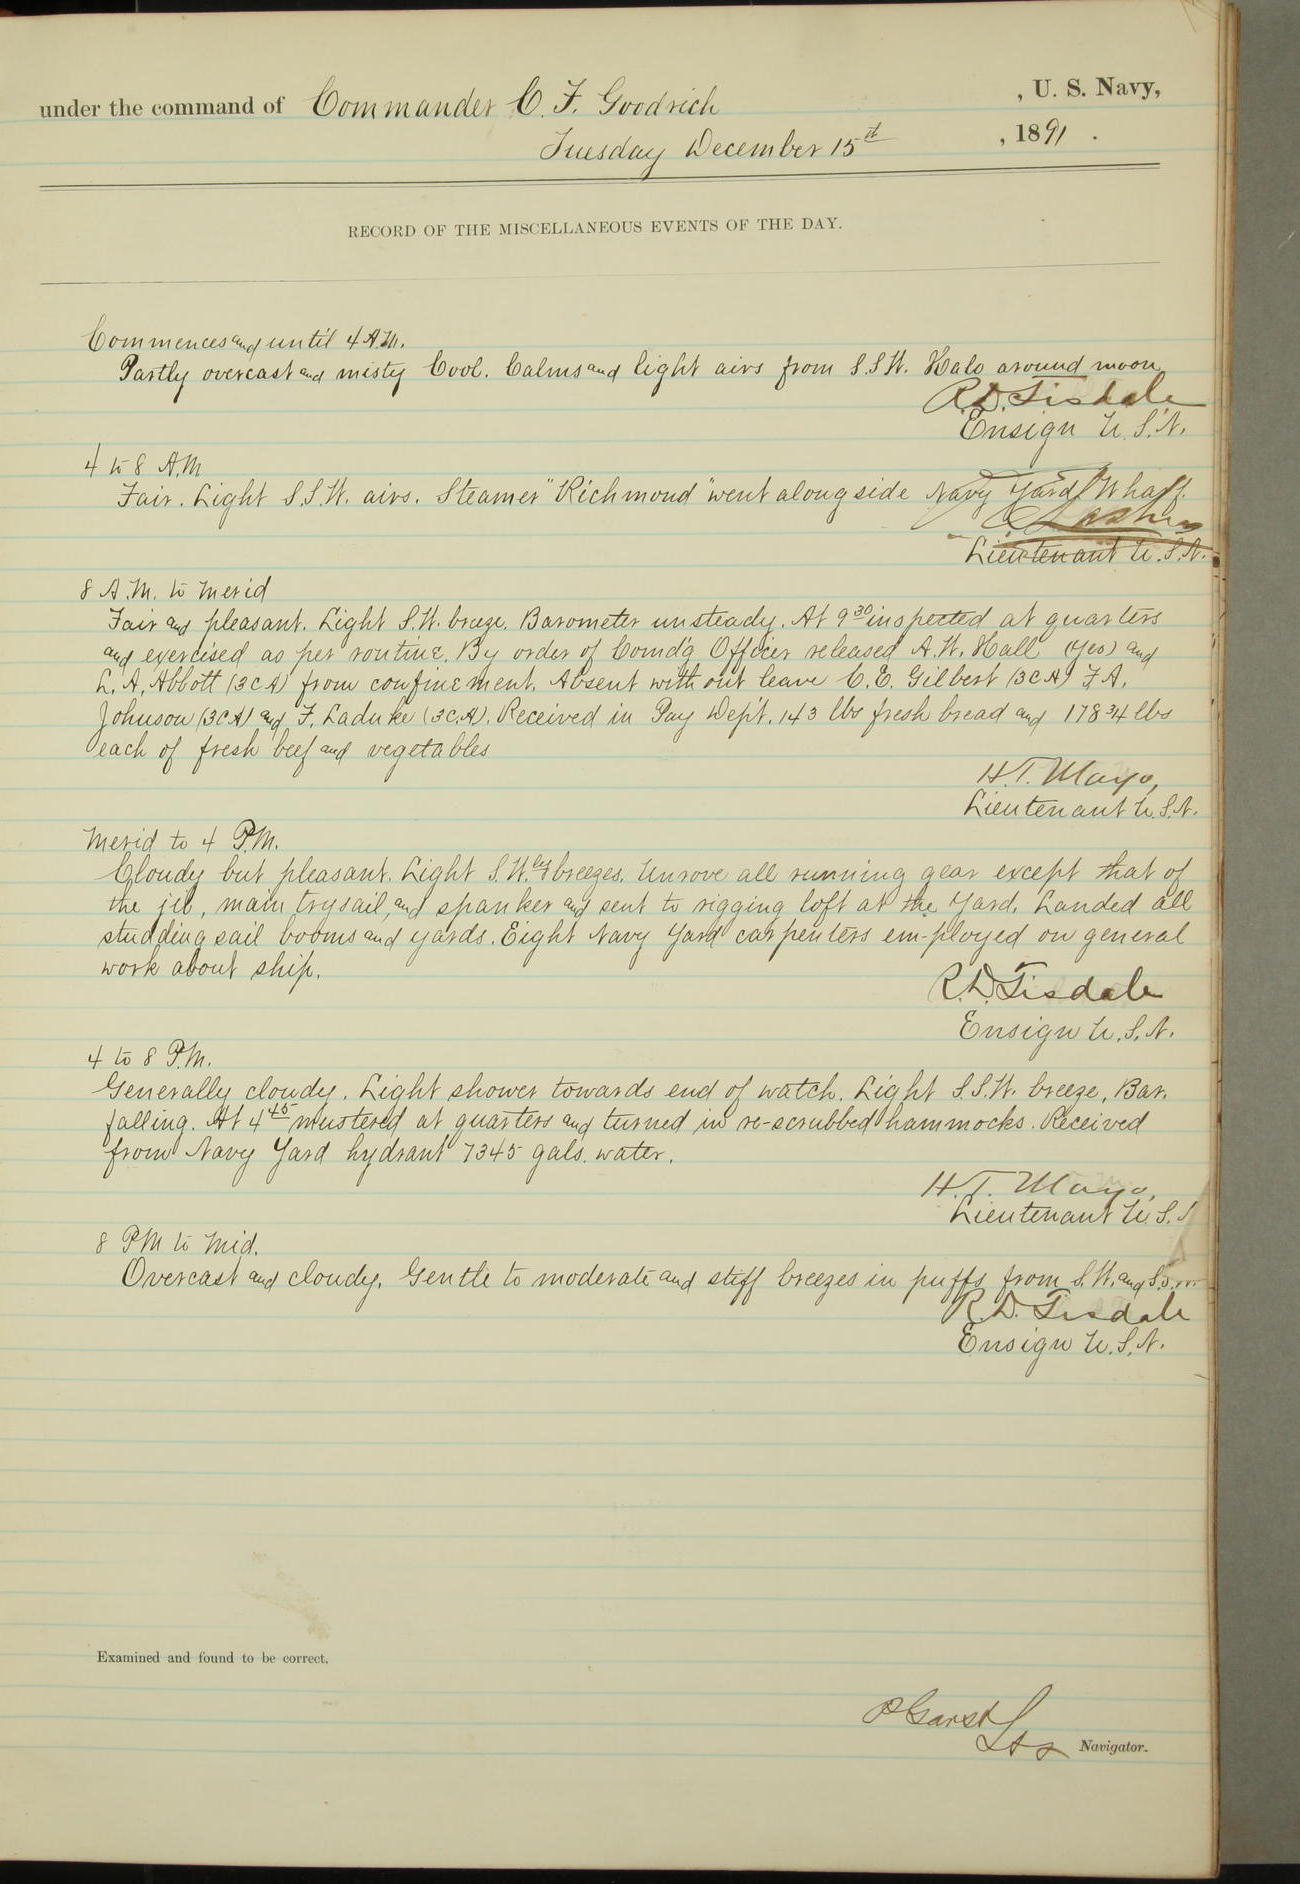 under the command of Commander C. F. Goodrich , U. S. Navy,
Tuesday December 15th , 1891 .
RECORD OF THE MISCELLANEOUS EVENTS OF THE DAY.
Commences and until 4 A.M.
Partly overcast and misty Cool. Calms and light airs from S.S.W. Halo around moon
R.D. Tisdale
Ensign U.S.N.
4 to 8 A.M
Fair. Light S.S.W. airs. Steamer "Richmond" went alongside Navy Yard Wharf.
Lieutenant U.S.N.
8 A.M. to Merid
Fair and pleasant. Light S.W. breeze. Barometer unsteady. At 9 30 inspected at quarters
and exercised as per routine. By order of Comd'g Officer released A.W. Hall (Yeo) and
L.A. Abbott (3CA) from confinement. Absent without leave C.E. Gilbert (3CA) F.A.
Johnson (3CA) and F. Laduke (3C.A). Received in Pay Dep't. 143 lbs fresh bread and 178 3/4 lbs
each of fresh beef and vegetables
H.T. Mayo,
Lieutenant U.S.N.
Merid to 4 P.M.
Cloudy but pleasant. Light S.W.ly breezes. Unrove all running gear except that of
the jib, main trysail, and spanker and sent to rigging loft at the Yard. Landed all
studding sail booms and yards. Eight Navy Yard carpenters em-ployed on general
work about ship.
R.D. Tisdale
Ensign U.S.N.
4 to 8 P.M.
Generally cloudy. Light shower towards end of watch. Light S.S.W. breeze, Bar.
falling. At 4 45 mustered at quarters and turned in re-scrubbed hammocks. Received
from Navy Yard hydrant 7345 gals. water.
H.T. Mayo,
Lieutenant U.S.
8 PM to Mid.
Overcast and cloudy. Gentle to moderate and stiff breezes in puffs from S.W. and S.S.W.
R.D. Tisdale
Ensign U.S.N.
Examined and found to be correct.
P Garst
Lt Navigator.